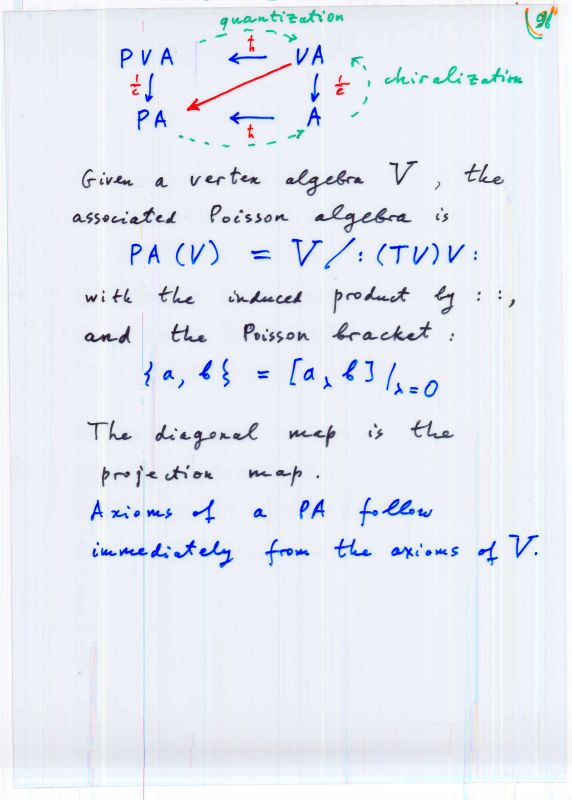 quantization
96
PVA ħ VA
1/c 1/c chiralization
PA ħ A
Given a vertex algebra V, the
associated Poisson algebra is
PA(V) = V/:(TV)V:
with the induced product by : :,
and the Poisson bracket:
{a, b} = [a_λ b]|_λ=0
The diagonal map is the
projection map.
Axioms of a PA follow
immediately from the axioms of V.